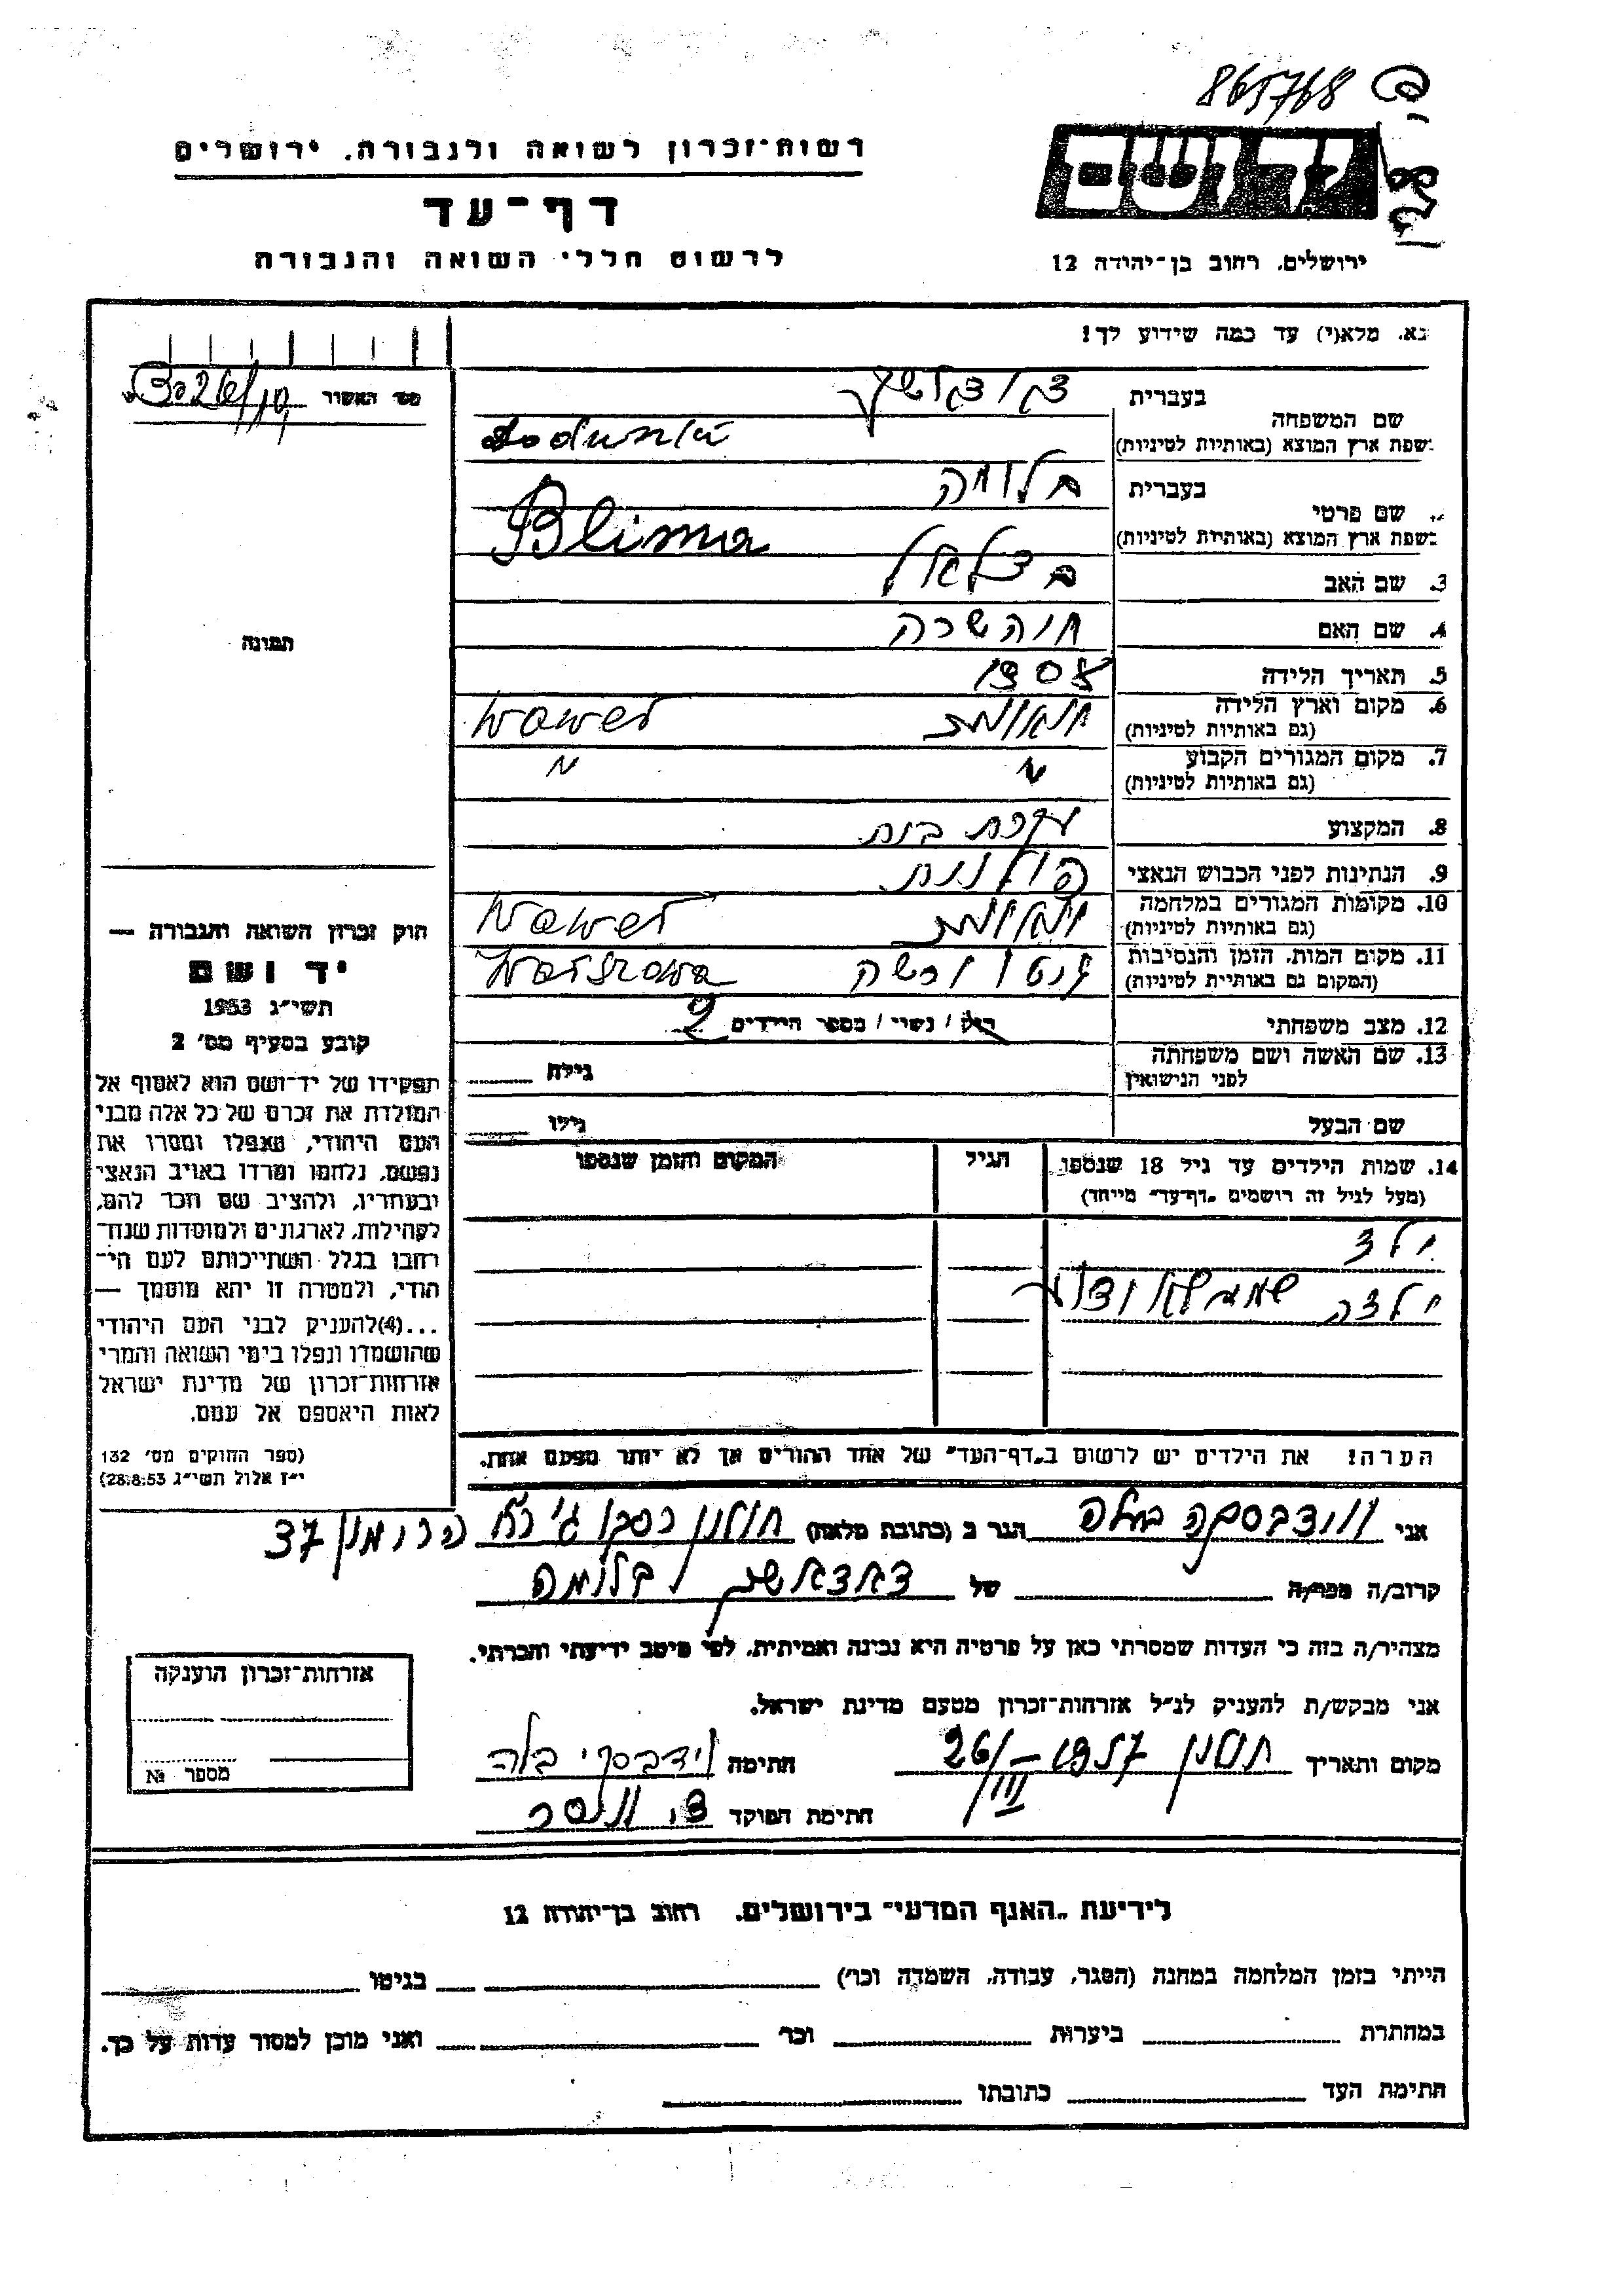 865768
רשות-זכרון לשואה ולגבורה, ירושלים
דף-עד
לרשום חללי השואה והגבורה
ירושלים, רחוב בן-יהודה 12
נא, מלא(י) עד כמה שידוע לך!
שם המשפחה
בעברית
בשפת ארץ המוצא (באותיות לטיניות)
שם פרטי
בעברית בלומה
בשפת ארץ המוצא (באותיות לטיניות) Blima
3. שם האב בצלאל
4. שם האם חוה שרה
5. תאריך הלידה
6. מקום וארץ הלידה
(גם באותיות לטיניות) Wawer
7. מקום המגורים הקבוע
(גם באותיות לטיניות) " "
8. המקצוע עקרת בית
9. הנתינות לפני הכבוש הנאצי פולנית
10. מקומות המגורים במלחמה
(גם באותיות לטיניות) Wawer
11. מקום המות, הזמן והנסיבות גטו ורשה
(המקום גם באותיות לטיניות) Warszawa
12. מצב משפחתי רוק / נשוי / מספר הילדים 2
13. שם האשה ושם משפחתה
לפני הנישואין גילה
שם הבעל גילו
14. שמות הילדים עד גיל 18 שנספו הגיל המקום והזמן שנספו
(מעל לגיל זה רושמים "דף-עד" מיוחד)
ילד
ילדה
הערה! את הילדים יש לרשום ב"דף-העד" של אחד ההורים אך לא יותר מפעם אחת.
מס' האשור
תמונה
חוק זכרון השואה והגבורה —
יד ושם
תשי"ג 1953
קובע בסעיף מס' 2
תפקידו של יד-ושם הוא לאסוף אל
המולדת את זכרם של כל אלה מבני
העם היהודי, שנפלו ומסרו את
נפשם, נלחמו ומרדו באויב הנאצי
ובעוזריו, ולהציב שם וזכר להם,
לקהילות, לארגונים ולמוסדות שנח-
רבו בגלל השתייכותם לעם הי-
הודי, ולמטרה זו יהא מוסמך —
...(4) להעניק לבני העם היהודי
שהושמדו ונפלו בימי השואה והמרי
אזרחות-זכרון של מדינת ישראל
לאות היאספם אל עמם.
(ספר החוקים מס' 132
י"ז אלול תשי"ג 28.8.53)
אני הגר ב (כתובת מלאה) חולון 37
קרוב/ה מכר/ה של בלומה
מצהיר/ה בזה כי העדות שמסרתי כאן על פרטיה היא נכונה ואמיתית, לפי מיטב ידיעתי והכרתי.
אני מבקש/ת להעניק לנ"ל אזרחות-זכרון מטעם מדינת ישראל.
מקום ותאריך חולון 26/III – 1957 חתימה
חתימת הפוקד
אזרחות-זכרון הוענקה
מספר №
לידיעת "האגף המדעי" בירושלים, רחוב בן-יהודה 12
הייתי בזמן המלחמה במחנה (הסגר, עבודה, השמדה וכו') בגיטו
במחתרת ביערות וכו' ואני מוכן למסור עדות על כך.
חתימת העד כתובתו